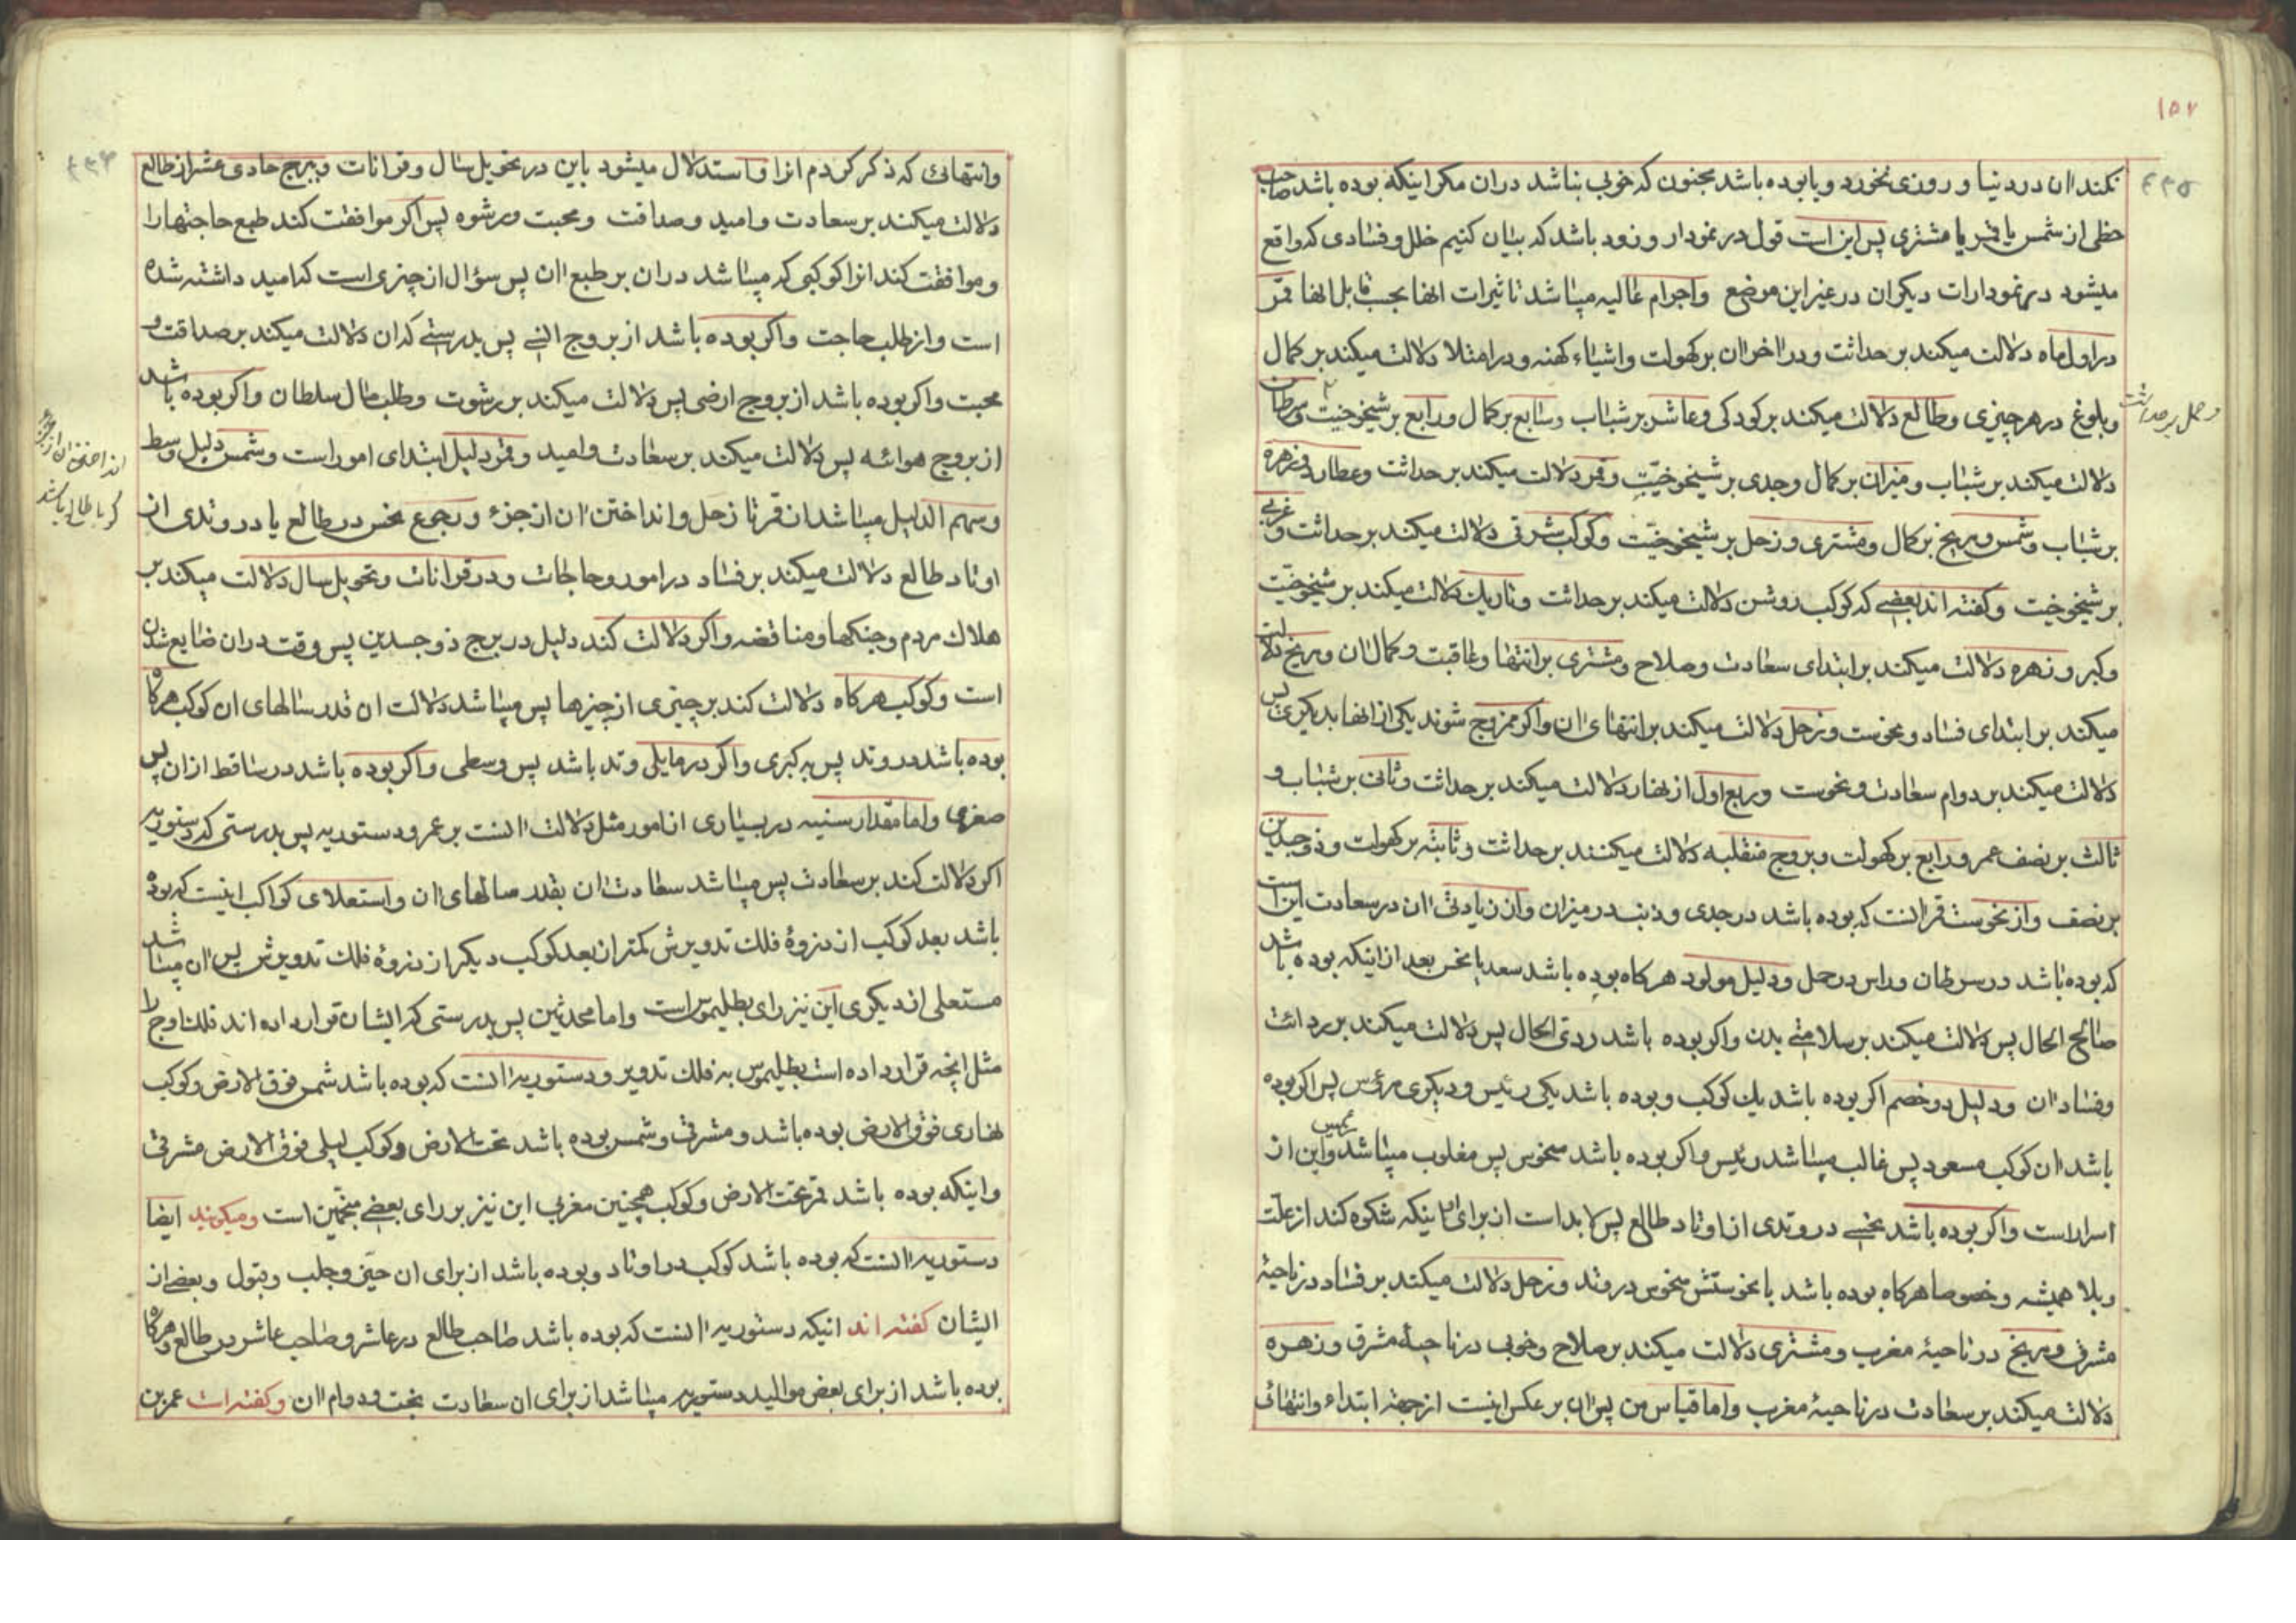 ۱۵۷
۴۳۵
نکند ان در دنیا و روزی نخورد و یا بوده باشد مجنون که خوبی نباشد دران مکر اینکه بوده باشد صاحب
حظی از شمس یا قمر یا مشتری پس این است قول در نمودار و زود باشد که بیان کنیم خلل و فسادی که واقع
میشود در نمودارات دیکران در غیر این موضع واجرام عالیه میباشد تاثیرات انها بحسب قابل انها قمر
در اول ماه دلالت میکند بر حداثت ودر اخر ان بر کهولت واشیاء کهنه ودر امتلا دلالت میکند بر کمال
و بلوغ در هر چیزی وطالع دلالت میکند بر کودکی وعاشر بر شباب وسابع بر کمال ورابع بر شیخوخیت وسرطان
وحمل بر حداثت
دلالت میکند بر شباب ومیزان بر کمال وجدی بر شیخوخیّت وقمر دلالت میکند بر حداثت وعطارد وزهره
بر شباب وشمس ومریخ بر کمال ومشتری وزحل بر شیخوخیّت وکوکب شرقی دلالت میکند بر حداثت وغربی
بر شیخوخیت وکفته اند بعضی که کوکب روشن دلالت میکند بر حداثت وتاریک دلالت میکند بر شیخوخیّت
وکبر وزهره دلالت میکند بر ابتدای سعادت وصلاح ومشتری بر انتها وعاقبت وکمال ان ومریخ دلالت
میکند بر ابتدای فساد ونحوست وزحل دلالت میکند بر انتهای ان واکر ممزوج شوند یکی از انها بدیکری پس
دلالت میکند بر دوام سعادت ونحوست وربع اول از نهار دلالت میکند بر حداثت وثانی بر شباب و
ثالث بر نصف عمر ورابع بر کهولت وبروج منقلبه دلالت میکنند بر حداثت وثابته بر کهولت وذوجسدین
بر نصف واز نحوست قمر انست که بوده باشد در جدی وذنب در میزان واز زیادتی ان در سعادت این است
که بوده باشد در سرطان وراس در حمل ودلیل مولود هرکاه بوده باشد سعد یا نحس بعد از اینکه بوده باشد
صالح الحال پس دلالت میکند بر سلامتی بدن واکر بوده باشد ردی الحال پس دلالت میکند بر ردائت
وفساد ان ودلیل دو خصم اکر بوده باشد یک کوکب وبوده باشد یکی رئیس ودیکری مرؤس پس اکر بوده
باشد ان کوکب مسعود پس غالب میباشد رئیس واکر بوده باشد منحوس پس مغلوب میباشد رئیس واین از
اسرار است واکر بوده باشد نحسی در وتدی از اوتاد طالع پس لا بد است از برای اینکه شکوه کند از علت
وبلا همیشه وخصوصا هرکاه بوده باشد با نحوستش منحوس در وتد وزحل دلالت میکند بر فساد در ناحیهٔ
مشرق ومریخ در ناحیهٔ مغرب ومشتری دلالت میکند بر صلاح وخوبی در ناحیهٔ مشرق وزهره
دلالت میکند بر سعادت در ناحیهٔ مغرب واما قیاس من پس ان بر عکس اینست از جههٔ ابتداء وانتهائی
۴۳۶
وانتهائی که ذکر کردم انرا واستدلال میشود باین در تحویل سال وقرانات وبرج حادی عشر از طالع
دلالت میکند بر سعادت وامید وصداقت ومحبت ورشوه پس اکر موافقت کند طبع حاجتها را
وموافقت کند انرا کوکبی که میباشد دران بر طبع ان پس سؤال از چیزی است که امید داشته شده
است واز طلب حاجت واکر بوده باشد از بروج انسی پس بدرستی که ان دلالت میکند بر صداقت و
محبت واکر بوده باشد از بروج ارضی پس دلالت میکند بر رشوت وطلب مال سلطان واکر بوده باشد
از بروج هوائیه پس دلالت میکند بر سعادت وامید وقمر دلیل ابتدای امور است وشمس دلیل وسط
وسهم الدلیل میباشد از قمر تا زحل وانداختن ان از جزء ورجوع نحس در طالع یا در وتدی از
اوتاد طالع دلالت میکند بر فساد در امور وحاجات ودر قرانات وتحویل سال دلالت میکند بر
هلاک مردم وجنکها ومناقضه واکر دلالت کند دلیل در برج ذو جسدین پس وقت دران ضایع شدن
است وکوکب هرکاه دلالت کند بر چیزی از چیزها پس میباشد دلالت ان قدر سالهای ان کوکب هرکاه
بوده باشد در وتد پس به کبری واکر در مایلی وتد باشد پس وسطی واکر بوده باشد در ساقط ازان پس
صغری واما مقدار سنیه در بسیاری از امور مثل دلالت انست بر عمر ودستوریه پس بدرستی که دستوریه
اکر دلالت کند بر سعادت پس میباشد سعادت ان بقدر سالهای ان واستعلای کواکب اینست که بوده
باشد بعد کوکب از ذروهٔ فلک تدویرش کمتر از بعد کوکب دیکر از ذروهٔ فلک تدویرش پس ان میباشد
مستعلی از دیکری این نیز رای بطلیموس است واما محدثین پس بدرستی که ایشان قرار داده اند فلک اوج را
مثل انچه قرار داده است بطلیموس به فلک تدویر ودستوریه انست که بوده باشد شمس فوق الارض وکوکب
نهاری فوق الارض بوده باشد ومشرقی وشمس بوده باشد تحت الارض وکوکب لیلی فوق الارض مشرقی
واینکه بوده باشد قمر تحت الارض وکوکب همچنین مغربی این نیز بر رای بعضی منجّمین است ومیکویند ایضا
دستوریه انست که بوده باشد کوکب در اوتاد وبوده باشد از برای ان حیّز وجلب وقبول وبعضی از
ایشان کفته اند انیکه دستوریه انست که بوده باشد صاحب طالع در عاشر وصاحب عاشر در طالع وهرکاه
بوده باشد از برای بعض موالید دستوریه میباشد از برای ان سعادت بخت ودوام ان وکفته است عمر بن